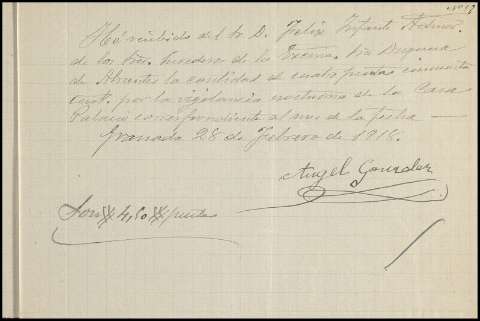 Nº 17
He recibido del Sr. D. Felix Infante Admor.
de los Sres. herederos de la Excma. Sra. Duquesa
de Abrantes la cantidad de cuatro pesetas cincuenta
cent. por la vigilancia nocturna de la Casa
Palacio correspondiente al mes de la fecha
Granada 28 de Febrero de 1918.
Angel Gonzalez
Son # 4,50 # pesetas